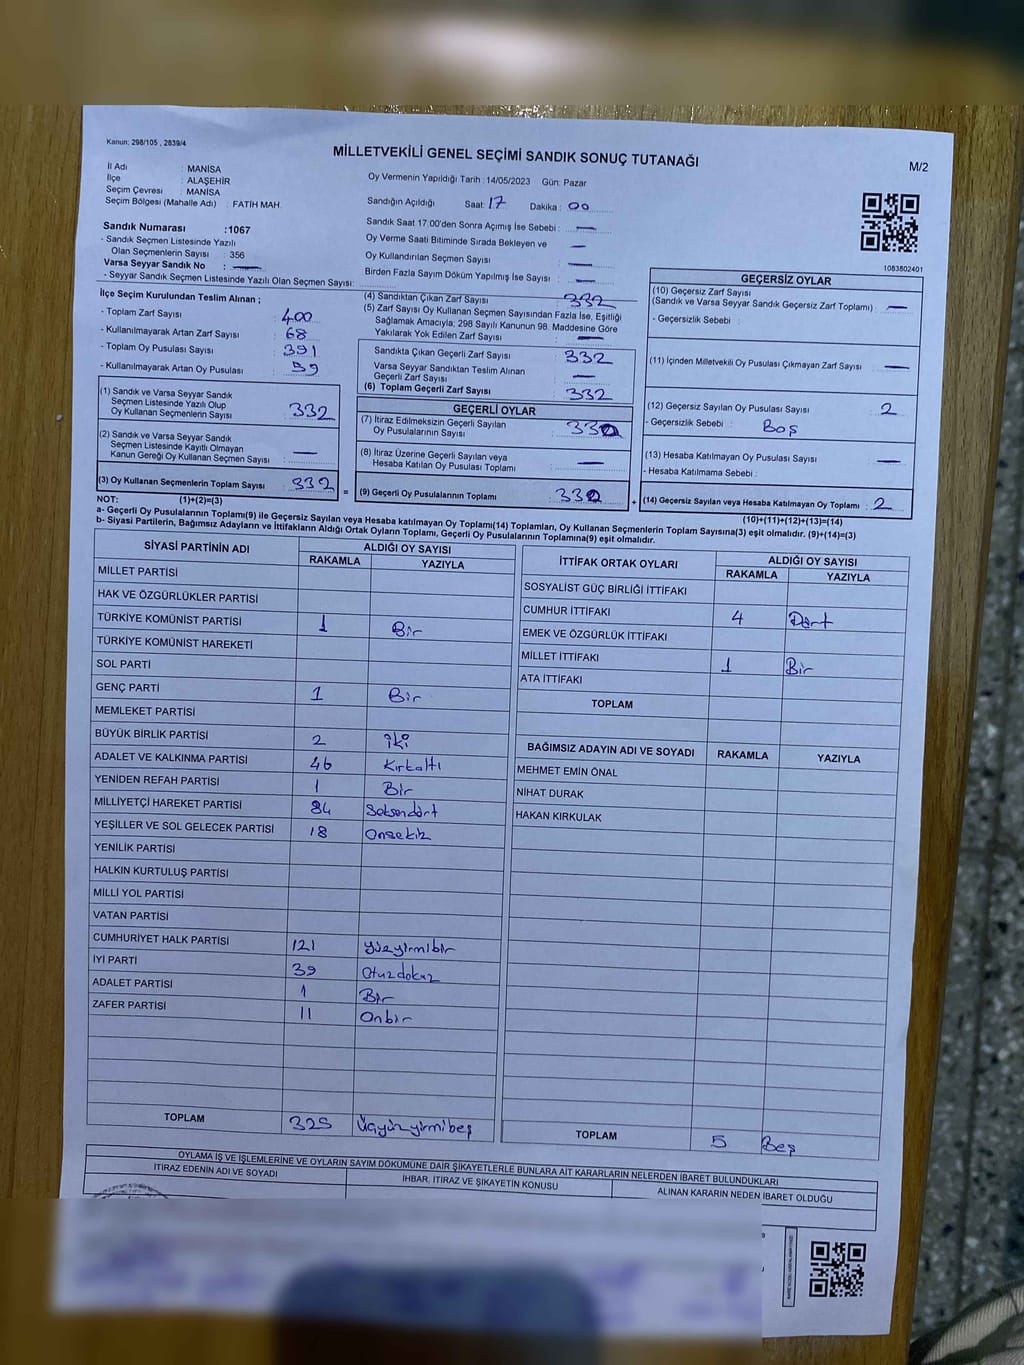 Kanun; 298/105 , 2839/4
MİLLETVEKİLİ GENEL SEÇİMİ SANDIK SONUÇ TUTANAĞI
M/2
İl Adı : MANİSA
İlçe : ALAŞEHİR
Seçim Çevresi : MANİSA
Seçim Bölgesi (Mahalle Adı) : FATİH MAH.
Oy Vermenin Yapıldığı Tarih : 14/05/2023 Gün: Pazar
Sandığın Açıldığı Saat: 17 Dakika: 00
Sandık Numarası :1067
- Sandık Seçmen Listesinde Yazılı
Olan Seçmenlerin Sayısı : 356
Varsa Seyyar Sandık No : —
- Seyyar Sandık Seçmen Listesinde Yazılı Olan Seçmen Sayısı:
Sandık Saat 17:00'den Sonra Açımış İse Sebebi : —
Oy Verme Saati Bitiminde Sırada Bekleyen ve —
Oy Kullandırılan Seçmen Sayısı : —
Birden Fazla Sayım Döküm Yapılmış İse Sayısı : —
1083802401
İlçe Seçim Kurulundan Teslim Alınan ;
- Toplam Zarf Sayısı : 400
- Kullanılmayarak Artan Zarf Sayısı : 68
- Toplam Oy Pusulası Sayısı : 391
- Kullanılmayarak Artan Oy Pusulası : 59
(1) Sandık ve Varsa Seyyar Sandık
Seçmen Listesinde Yazılı Olup
Oy Kullanan Seçmenlerin Sayısı : 332
(2) Sandık ve Varsa Seyyar Sandık
Seçmen Listesinde Kayıtlı Olmayan
Kanun Gereği Oy Kullanan Seçmen Sayısı : —
(3) Oy Kullanan Seçmenlerin Toplam Sayısı : 332
(4) Sandıktan Çıkan Zarf Sayısı : 332
(5) Zarf Sayısı Oy Kullanan Seçmen Sayısından Fazla İse, Eşitliği
Sağlamak Amacıyla, 298 Sayılı Kanunun 98. Maddesine Göre
Yakılarak Yok Edilen Zarf Sayısı : —
Sandıkta Çıkan Geçerli Zarf Sayısı : 332
Varsa Seyyar Sandıktan Teslim Alınan
Geçerli Zarf Sayısı : —
(6) Toplam Geçerli Zarf Sayısı : 332
GEÇERLİ OYLAR
(7) İtiraz Edilmeksizin Geçerli Sayılan
Oy Pusulalarının Sayısı : 330
(8) İtiraz Üzerine Geçerli Sayılan veya
Hesaba Katılan Oy Pusulası Toplamı : —
= (9) Geçerli Oy Pusulalarının Toplamı : 330
GEÇERSİZ OYLAR
(10) Geçersiz Zarf Sayısı
(Sandık ve Varsa Seyyar Sandık Geçersiz Zarf Toplamı) : —
- Geçersizlik Sebebi :
(11) İçinden Milletvekili Oy Pusulası Çıkmayan Zarf Sayısı : —
(12) Geçersiz Sayılan Oy Pusulası Sayısı : 2
- Geçersizlik Sebebi : Boş
(13) Hesaba Katılmayan Oy Pusulası Sayısı : —
- Hesaba Katılmama Sebebi :
+ (14) Geçersiz Sayılan veya Hesaba Katılmayan Oy Toplamı : 2
NOT: (1)+(2)=(3)
(10)+(11)+(12)+(13)=(14)
a- Geçerli Oy Pusulalarının Toplamı(9) ile Geçersiz Sayılan veya Hesaba katılmayan Oy Toplamı(14) Toplamları, Oy Kullanan Seçmenlerin Toplam Sayısına(3) eşit olmalıdır. (9)+(14)=(3)
b- Siyasi Partilerin, Bağımsız Adayların ve İttifakların Aldığı Ortak Oyların Toplamı, Geçerli Oy Pusulalarının Toplamına(9) eşit olmalıdır.
SİYASİ PARTİNİN ADI ALDIĞI OY SAYISI
RAKAMLA YAZIYLA
MİLLET PARTİSİ
HAK VE ÖZGÜRLÜKLER PARTİSİ
TÜRKİYE KOMÜNİST PARTİSİ 1 Bir
TÜRKİYE KOMÜNİST HAREKETİ
SOL PARTİ
GENÇ PARTİ 1 Bir
MEMLEKET PARTİSİ
BÜYÜK BİRLİK PARTİSİ 2 iki
ADALET VE KALKINMA PARTİSİ 46 Kırkaltı
YENİDEN REFAH PARTİSİ 1 Bir
MİLLİYETÇİ HAREKET PARTİSİ 84 Seksendört
YEŞİLLER VE SOL GELECEK PARTİSİ 18 Onsekiz
YENİLİK PARTİSİ
HALKIN KURTULUŞ PARTİSİ
MİLLİ YOL PARTİSİ
VATAN PARTİSİ
CUMHURİYET HALK PARTİSİ 121 Yüzyirmibir
İYİ PARTİ 39 Otuzdokuz
ADALET PARTİSİ 1 Bir
ZAFER PARTİSİ 11 Onbir
TOPLAM 325 Üçyüzyirmibeş
İTTİFAK ORTAK OYLARI ALDIĞI OY SAYISI
RAKAMLA YAZIYLA
SOSYALİST GÜÇ BİRLİĞİ İTTİFAKI
CUMHUR İTTİFAKI 4 Dört
EMEK VE ÖZGÜRLÜK İTTİFAKI
MİLLET İTTİFAKI 1 Bir
ATA İTTİFAKI
TOPLAM
BAĞIMSIZ ADAYIN ADI VE SOYADI RAKAMLA YAZIYLA
MEHMET EMİN ÖNAL
NİHAT DURAK
HAKAN KIRKULAK
TOPLAM 5 Beş
OYLAMA İŞ VE İŞLEMLERİNE VE OYLARIN SAYIM DÖKÜMÜNE DAİR ŞİKAYETLERLE BUNLARA AİT KARARLARIN NELERDEN İBARET BULUNDUKLARI
İTİRAZ EDENİN ADI VE SOYADI İHBAR, İTİRAZ VE ŞİKAYETİN KONUSU ALINAN KARARIN NEDEN İBARET OLDUĞU